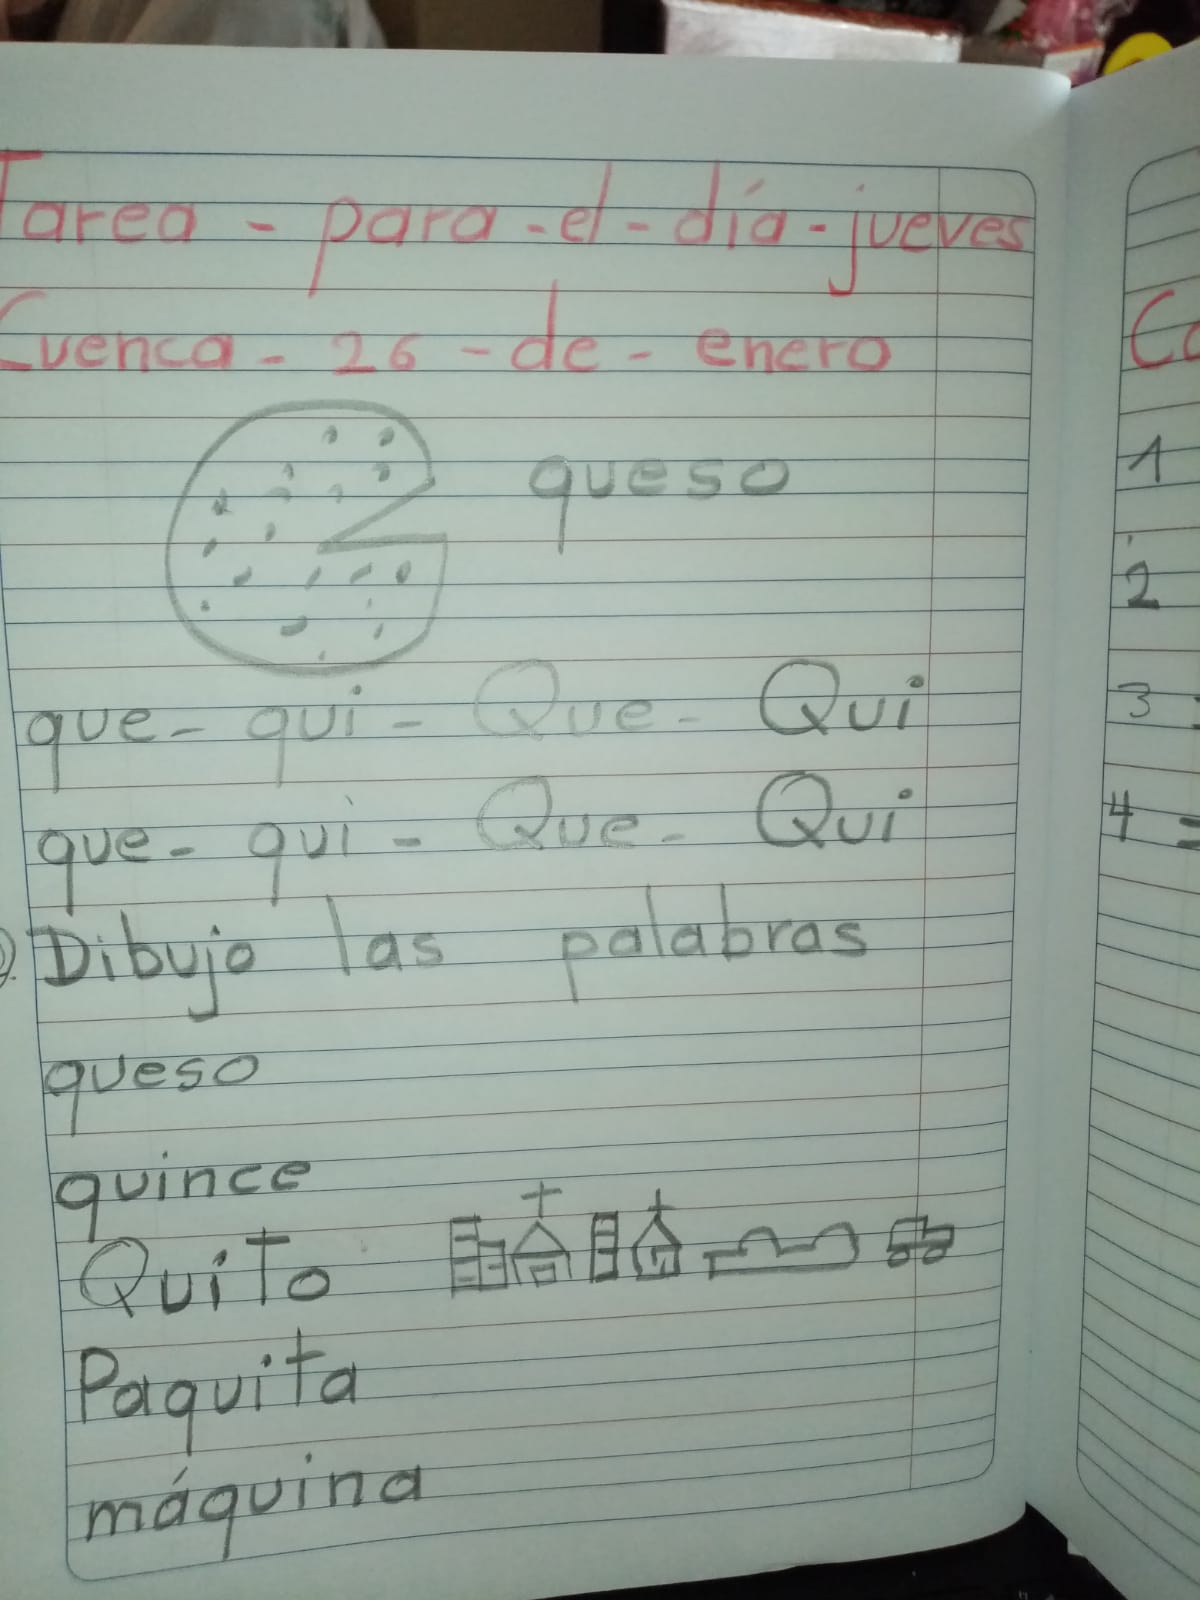 Tarea - para - el - día - jueves
Cuenca - 26 - de - enero
queso
que - qui - Que - Qui
que - qui - Que - Qui
Dibujo las palabras
queso
quince
Quito
Paquita
máquina
1
2
3
4